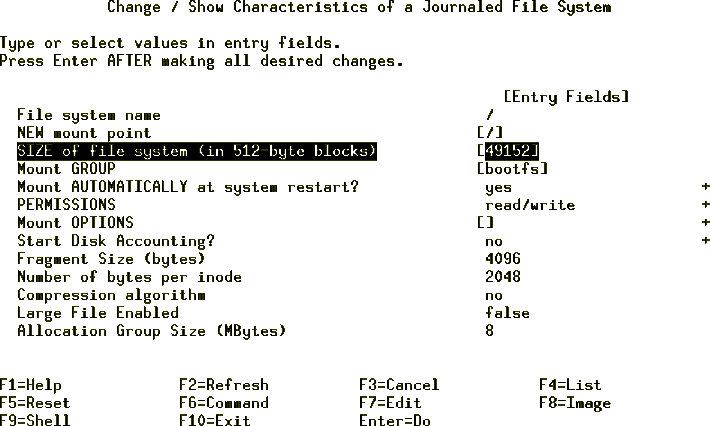 Change / Show Characteristics of a Journaled File System
Type or select values in entry fields.
Press Enter AFTER making all desired changes.
[Entry Fields]
File system name /
NEW mount point [/]
SIZE of file system (in 512-byte blocks) [49152]
Mount GROUP [bootfs]
Mount AUTOMATICALLY at system restart? yes +
PERMISSIONS read/write +
Mount OPTIONS [] +
Start Disk Accounting? no +
Fragment Size (bytes) 4096
Number of bytes per inode 2048
Compression algorithm no
Large File Enabled false
Allocation Group Size (MBytes) 8
F1=Help F2=Refresh F3=Cancel F4=List
F5=Reset F6=Command F7=Edit F8=Image
F9=Shell F10=Exit Enter=Do